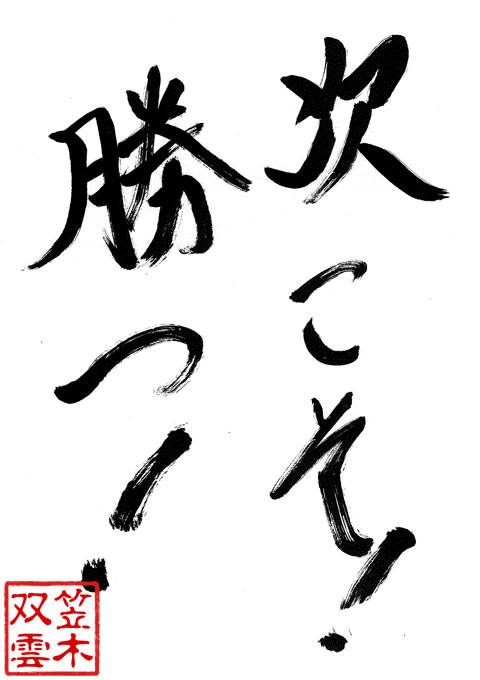 次こそ!
勝つ!
笠木
双雲